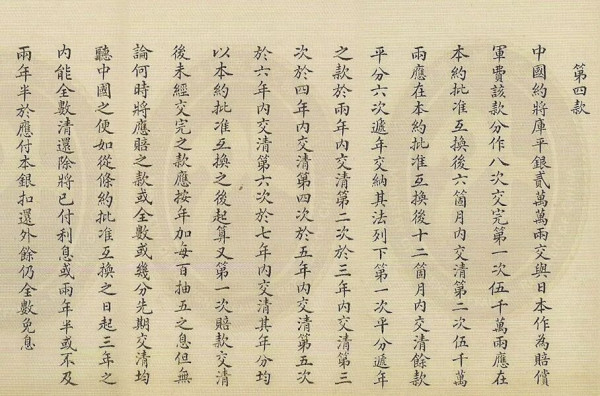 第四款
中國約將庫平銀貳萬萬兩交與日本作為賠償
軍費該款分作八次交完第一次伍千萬兩應在
本約批准互換後六箇月內交清第二次伍千萬
兩應在本約批准互換後十二箇月內交清餘款
平分六次遞年交納其法列下第一次平分遞年
之款於兩年內交清第二次於三年內交清第三
次於四年內交清第四次於五年內交清第五次
於六年內交清第六次於七年內交清其年分均
以本約批准互換之後起算又第一次賠款交清
後未經交完之款應按年加每百抽五之息但無
論何時將應賠之款或全數或幾分先期交清均
聽中國之便如從條約批准互換之日起三年之
內能全數清還除將已付利息或兩年半或不及
兩年半於應付本銀扣還外餘仍全數免息